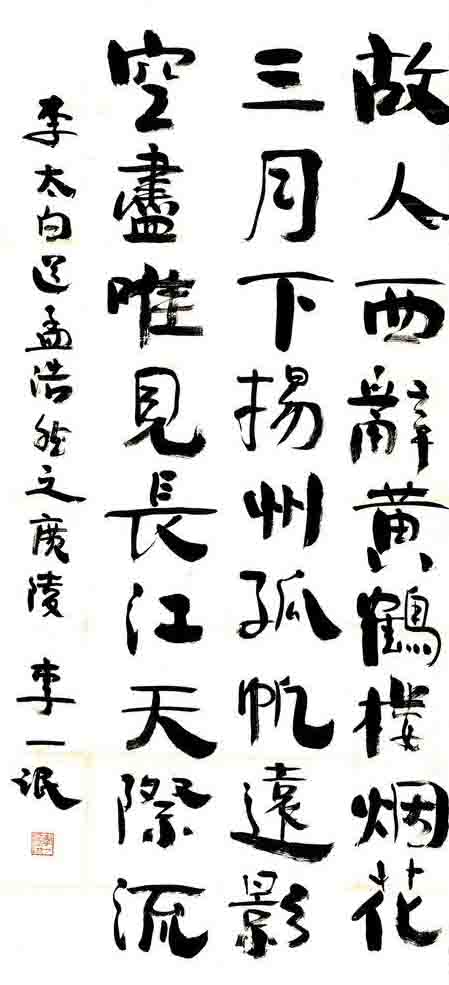 故人西辭黄鶴樓烟花
三月下揚州孤帆遠影
空盡唯見長江天際流
李太白送孟浩然之廣陵 李一氓